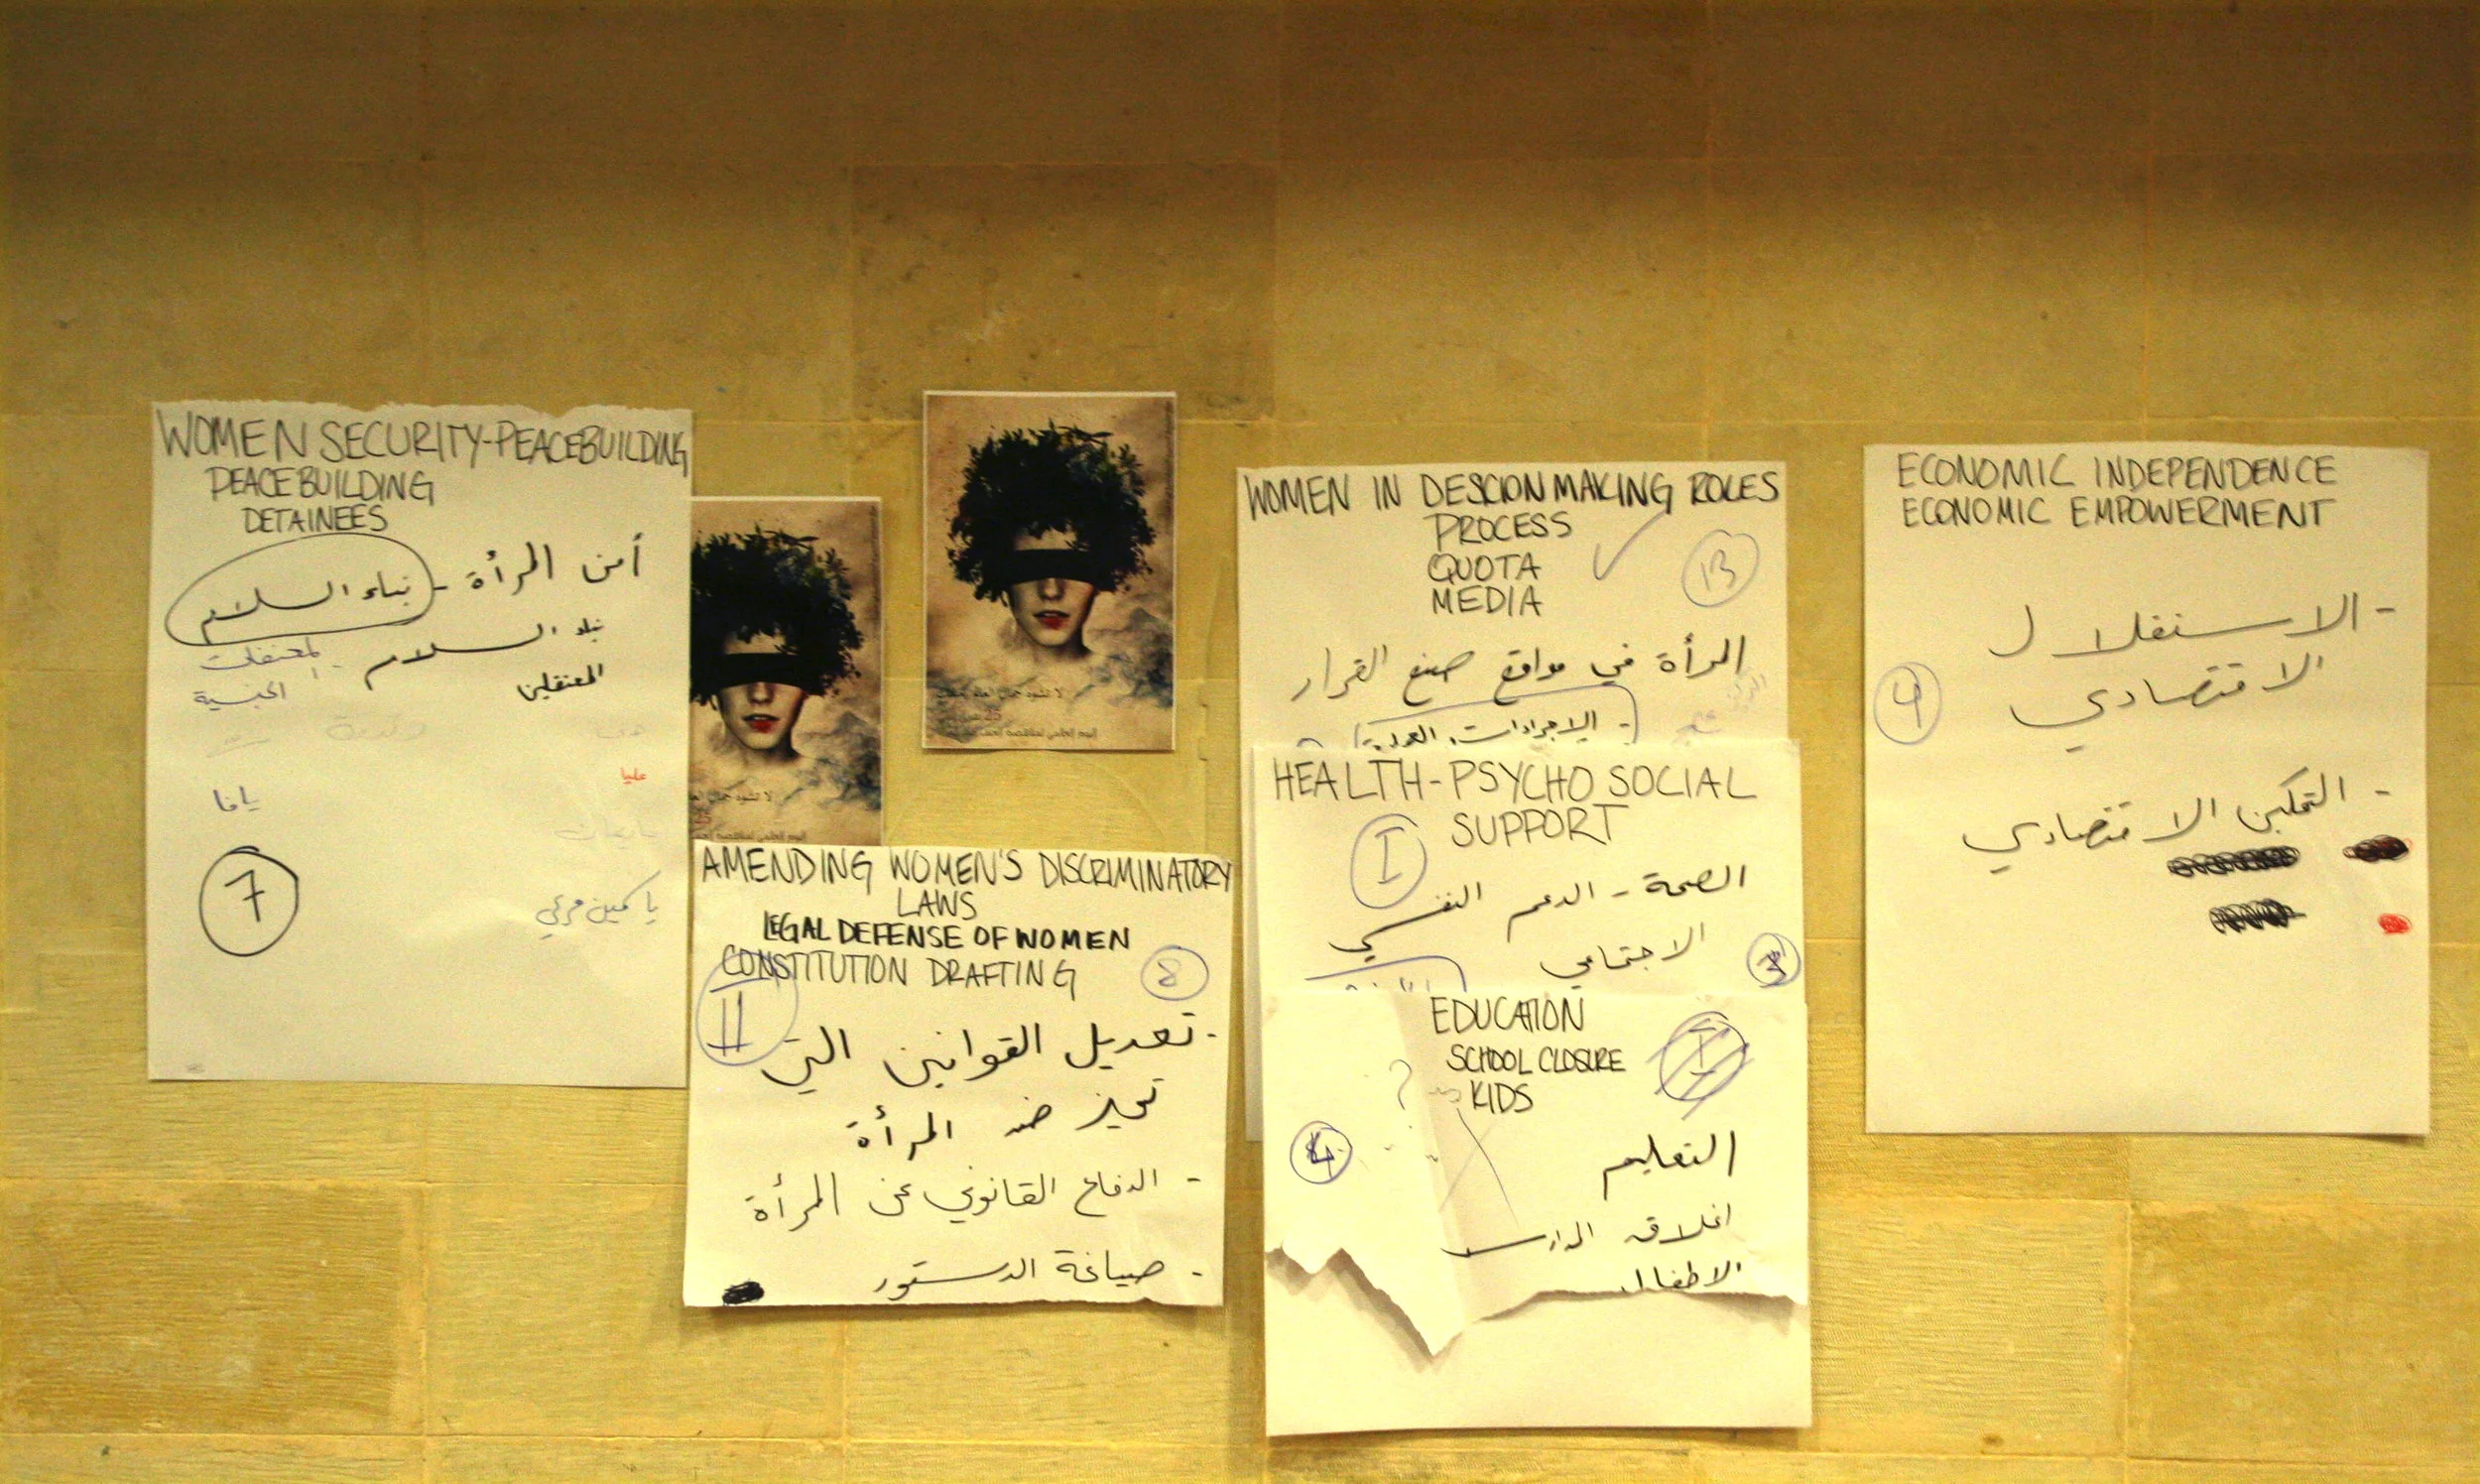 WOMEN SECURITY-PEACEBUILDING
PEACEBUILDING
DETAINEES
أمن المرأة - بناء السلام
بناء السلام
المعتقلين
الجنسية
عليا
يافا
7
لا تشوه جمال
25
اليوم العالمي لمناهضة العنف
لا تشوه جمال
25
اليوم العالمي لمناهضة العنف
AMENDING WOMEN'S DISCRIMINATORY
LAWS
LEGAL DEFENSE OF WOMEN
CONSTITUTION DRAFTING
8
11
- تعديل القوانين التي
تميز ضد المرأة
- الدفاع القانوني عن المرأة
- صياغة الدستور
WOMEN IN DESCION MAKING ROLES
PROCESS
QUOTA
MEDIA
13
المرأة في مواقع صنع القرار
- الاجراءات
HEALTH-PSYCHO SOCIAL
SUPPORT
I
الصحة - الدعم النفسي
الاجتماعي
EDUCATION
SCHOOL CLOSURE
KIDS
4
التعليم
اغلاق المدارس
الاطفال
ECONOMIC INDEPENDENCE
ECONOMIC EMPOWERMENT
- الاستقلال
الاقتصادي
- التمكين الاقتصادي